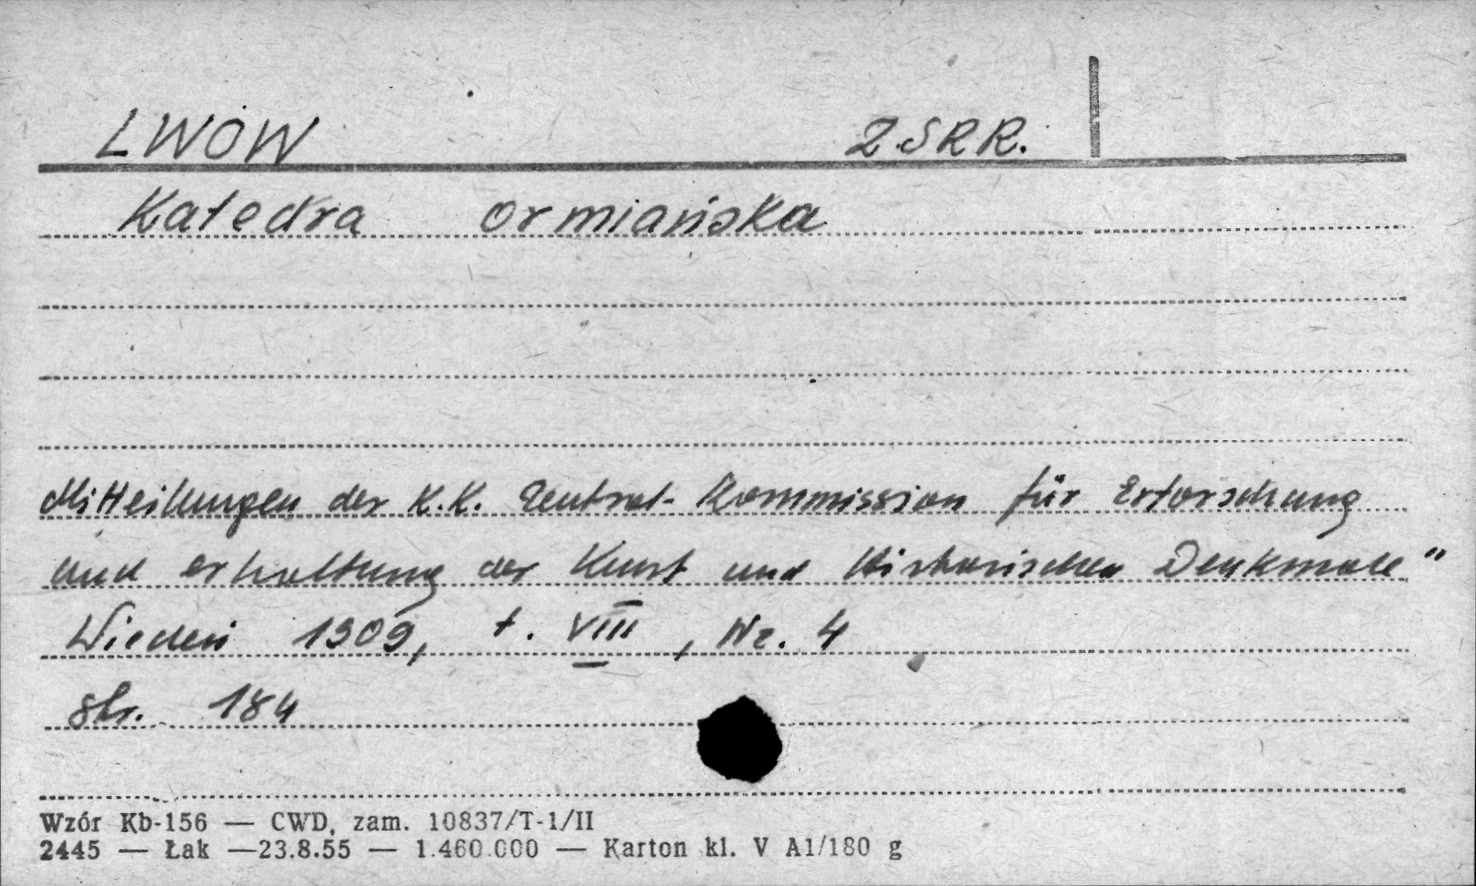 LWÓW ZSRR.
Katedra ormiańska
Mitteilungen der K.K. Zentral-Kommission für Erforschung
und erhaltung der Kunst und Historischen Denkmale"
Wiedeń 1909, t. VIII, Nr. 4
str. 184
Wzór Kb-156 — CWD, zam. 10837/T-1/II
2445 — Łak —23.8.55 — 1.460.000 — Karton kl. V A1/180 g